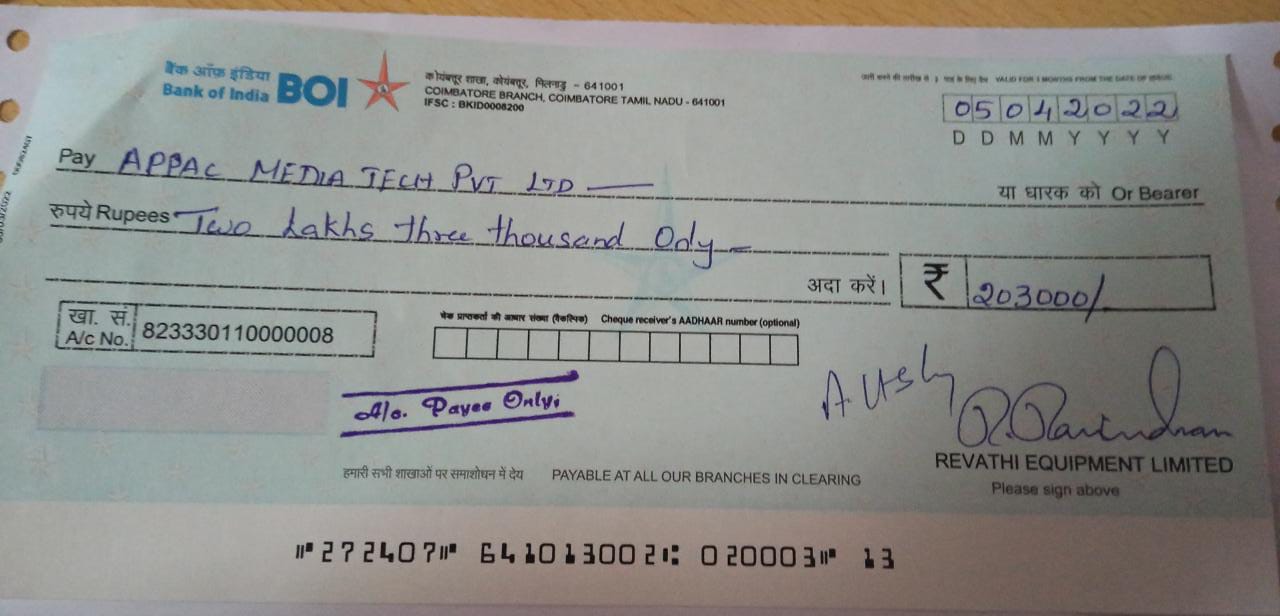 बैंक ऑफ़ इंडिया
Bank of India BOI
कोयंबत्तूर शाखा, कोयंबत्तूर, - 641001
COIMBATORE BRANCH, COIMBATORE TAMIL NADU - 641001
IFSC : BKID0008200
VALID FOR 3 MONTHS FROM THE DATE OF ISSUE
05042022
D D M M Y Y Y Y
Pay APPAC MEDIA TECH PVT LTD
या धारक को Or Bearer
रुपये Rupees Two Lakhs three thousand Only
अदा करें। ₹ 203000/
खा. सं.
A/c No. 823330110000008
चेक प्राप्तकर्ता की आधार संख्या (वैकल्पिक) Cheque receiver's AADHAAR number (optional)
A/c. Payee Only.
A. Ush R. Ravindran
REVATHI EQUIPMENT LIMITED
Please sign above
हमारी सभी शाखाओं पर समाशोधन में देय PAYABLE AT ALL OUR BRANCHES IN CLEARING
⑈272407⑈ 641013002⑆ 020003⑈ 13